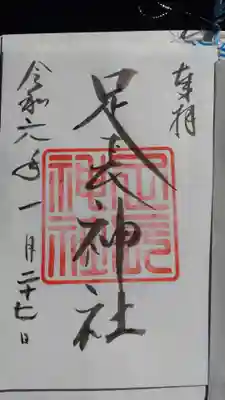 奉拝
足長神社
足長
神社
令和六年一月二十七日